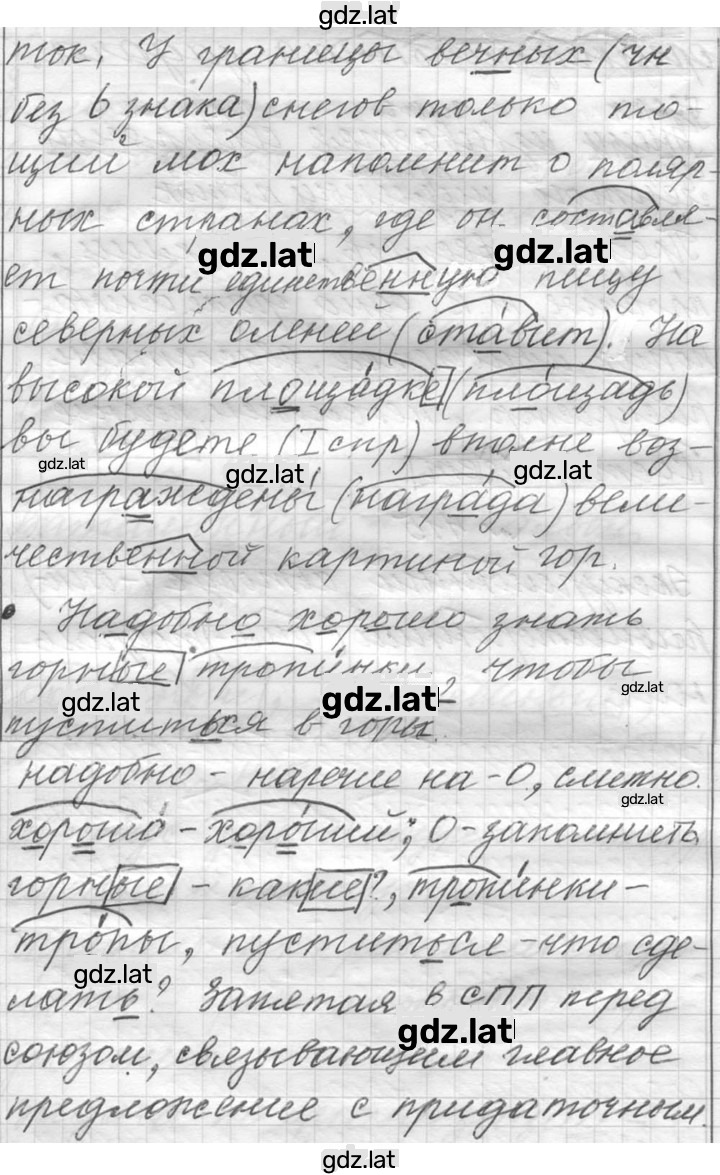 gdz.lat
ток. У границы вечных (чн
без ь знака) снегов только то-
щий мох напоминит о поляр-
ных странах, где он составля-
gdz.lat gdz.lat
ет почти единственную пищу
северных оленей (ставит). На
высокой площадке (площадь)
вы будете (I спр) вполне воз-
gdz.lat gdz.lat gdz.lat
награждены (награда) вели-
чественной картиной гор.
Надобно хорошо знать
горные тропинки, чтобы
gdz.lat gdz.lat gdz.lat
пуститься в горы.
надобно - наречие на -О, сметно.
gdz.lat
хороша - хороший; О - запомнить,
горные - какие?, тропинки -
тропы, пуститься - что сде-
gdz.lat
лать? Запятая в СПП перед
gdz.lat
союзом, связывающим главное
предложение с придаточным.
gdz.lat